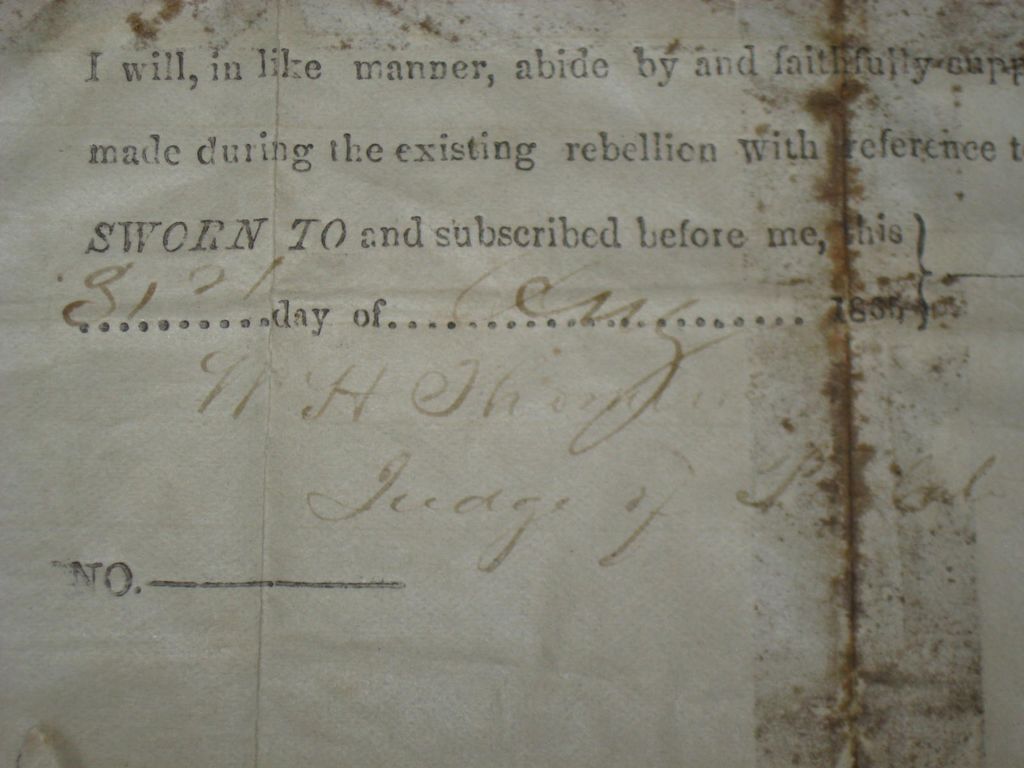 I will, in like manner, abide by and faithfully supp
made during the existing rebellion with reference t
SWORN TO and subscribed before me, this }
31st day of Aug 1865
W H
Judge of
NO.